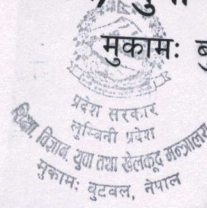 मुकामः
प्रदेश सरकार
लुम्बिनी प्रदेश
शिक्षा, विज्ञान, युवा तथा खेलकूद मन्त्रालय
मुकामः बुटवल, नेपाल